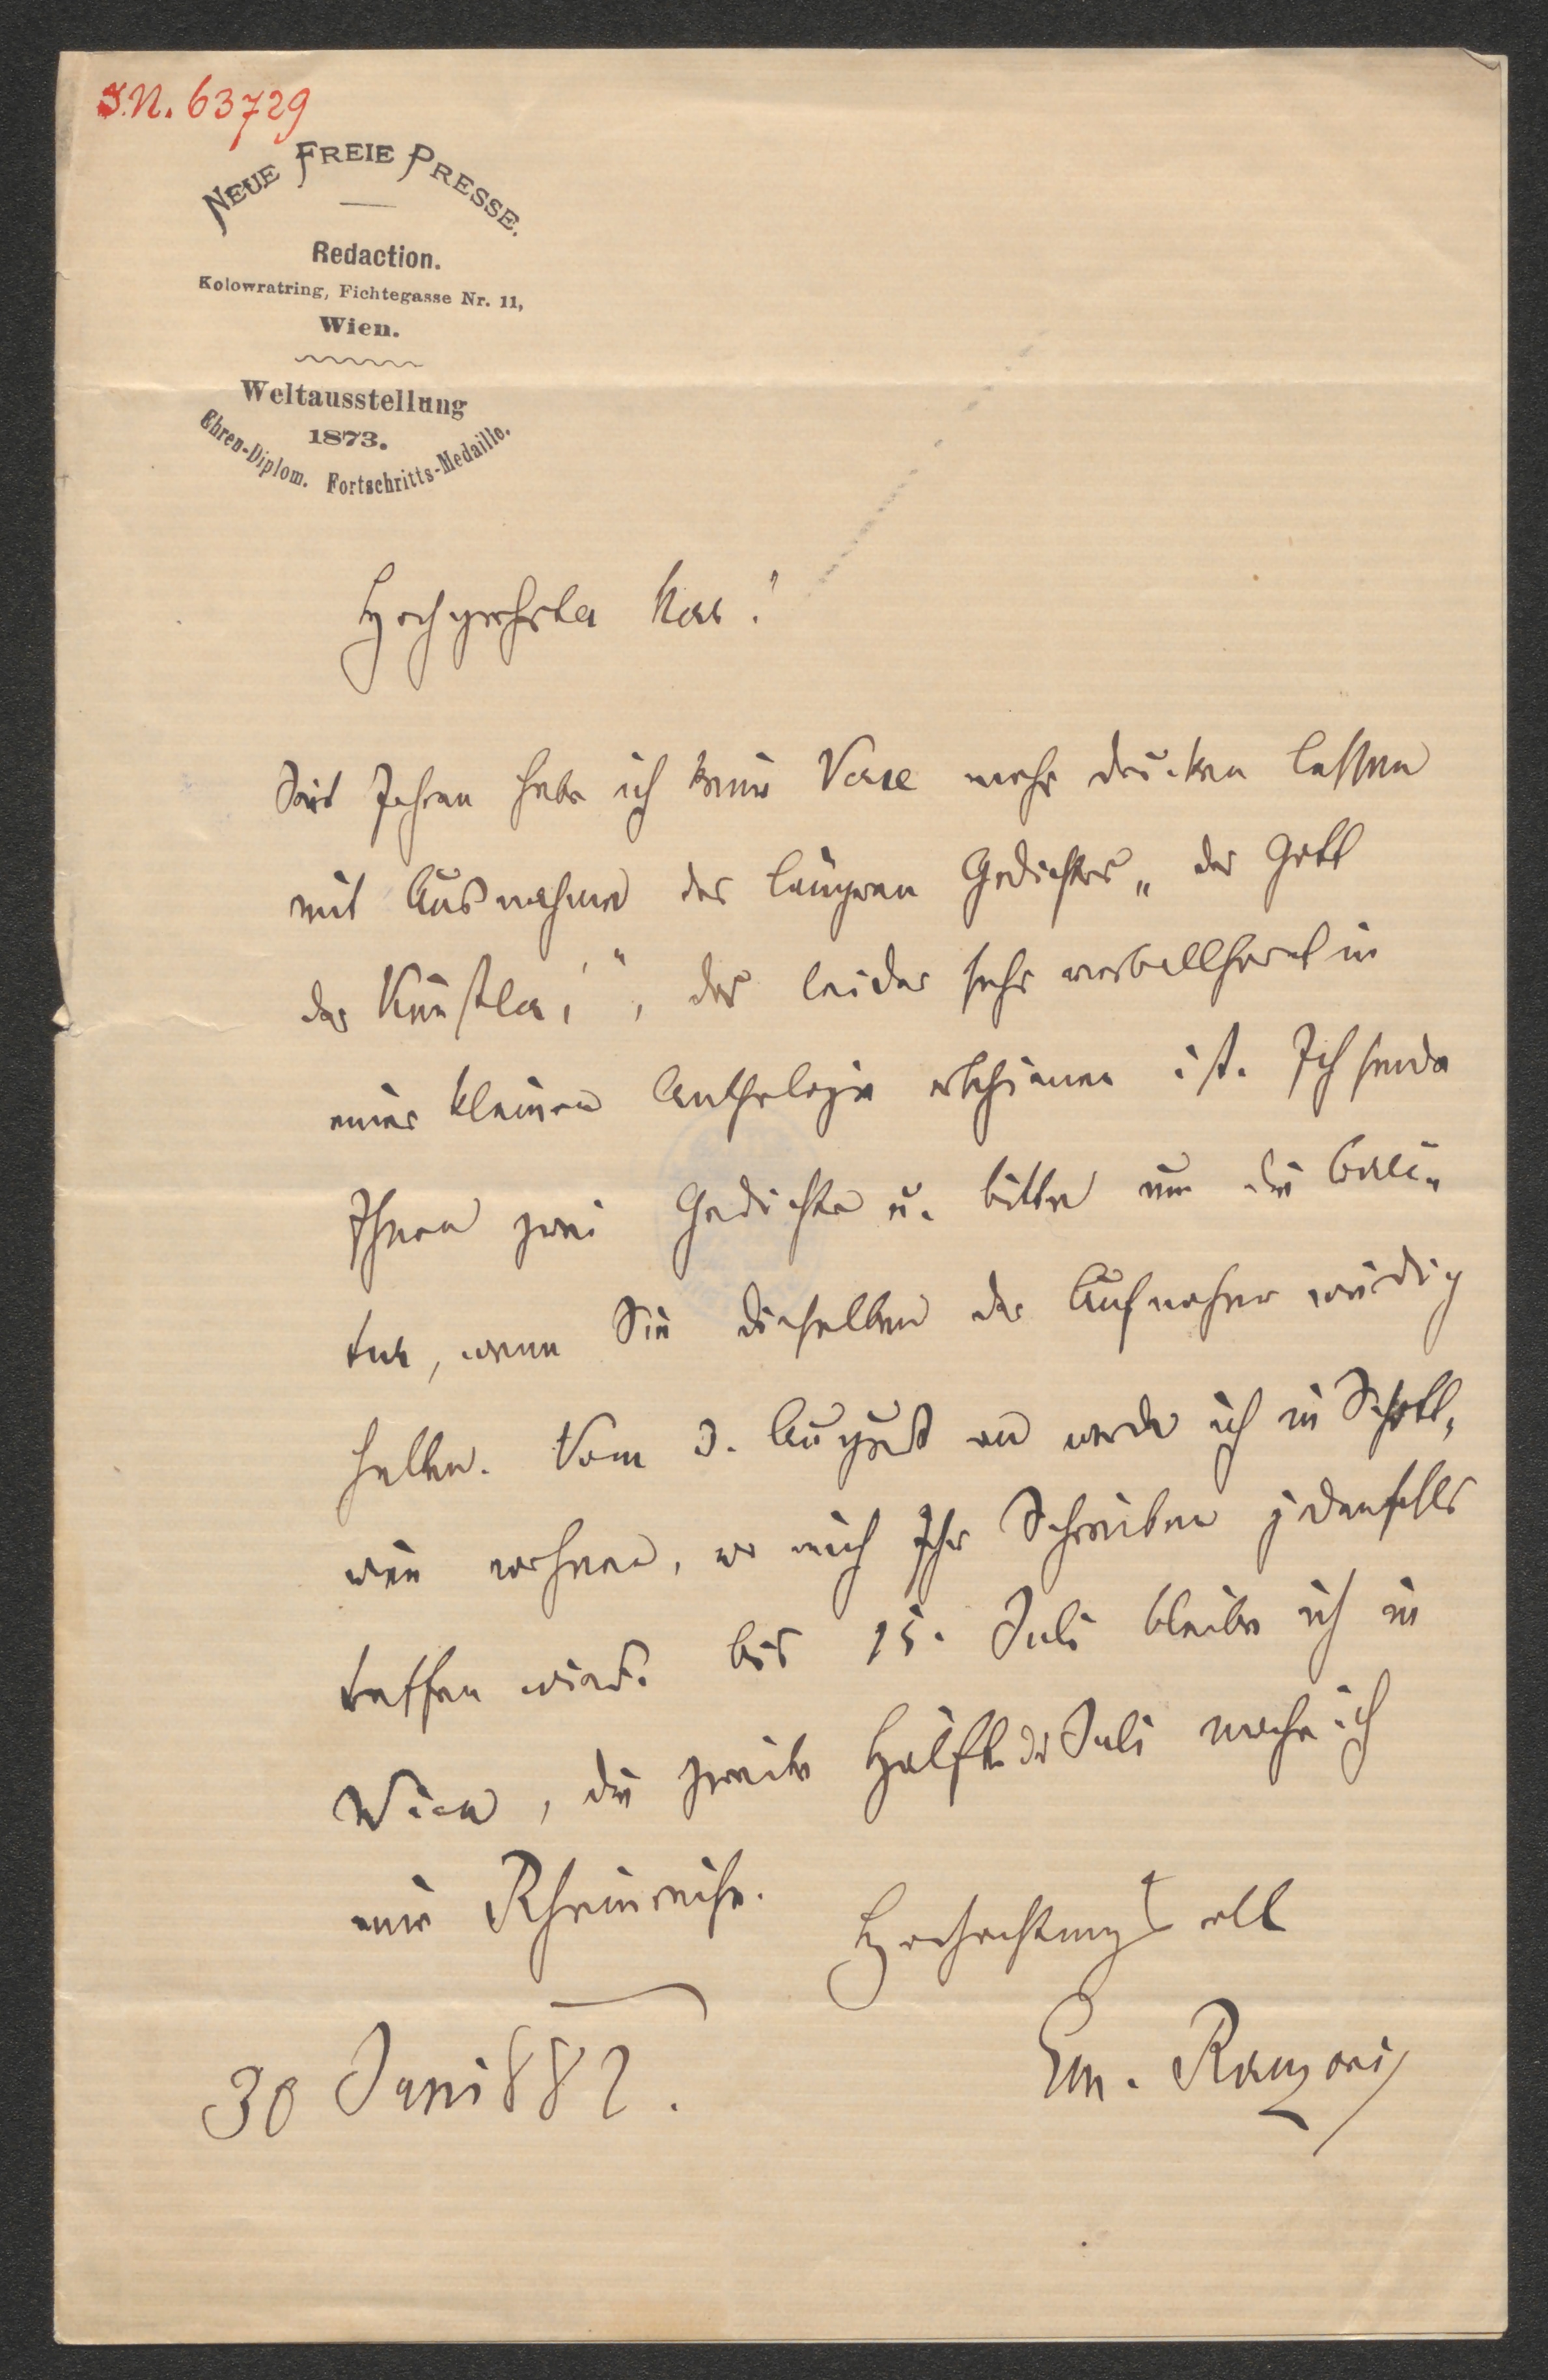 I.N. 63729
NEUE FREIE PRESSE.
Redaction.
Kolowratring, Fichtegasse Nr. 11,
Wien.
Weltausstellung
1873.
Ehren-Diplom. Fortschritts-Medaille.
Hochgeehrter Herr!
Seit Jahren habe ich keine Verse mehr drucken lassen
mit Ausnahme des längeren Gedichtes „der Gott
der Künstler,“, das leider sehr verballhornt in
einer kleinen Anthologie erschienen ist. Ich sende
Ihnen zwei Gedichte u. bitte um die Correc-
tur, wenn Sie dieselben der Aufnahme würdig
halten. Vom 3. August an werde ich in Schott-
wien wohnen, wo mich Ihr Schreiben jedenfalls
treffen wird. bis 15. Juli bleibe ich in
Wien, die zweite Hälfte des Juli mache ich
eine Rheinreise.
Hochachtungsvoll
Em. Ranzoni
30 Juni 882.